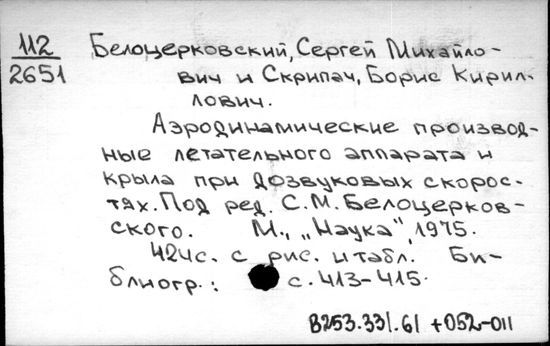 112
2651
Белоцерковский, Сергей Михайло-
вич и Скрипач, Борис Кирил-
лович.
Аэродинамические производ-
ные летательного аппарата и
крыла при дозвуковых скорос-
тях. Под ред. С.М. Белоцерков-
ского. М., „Наука“, 1975.
424с. с рис. и табл. Би-
блиогр.: с. 413-415.
В253.331.61 +052-011